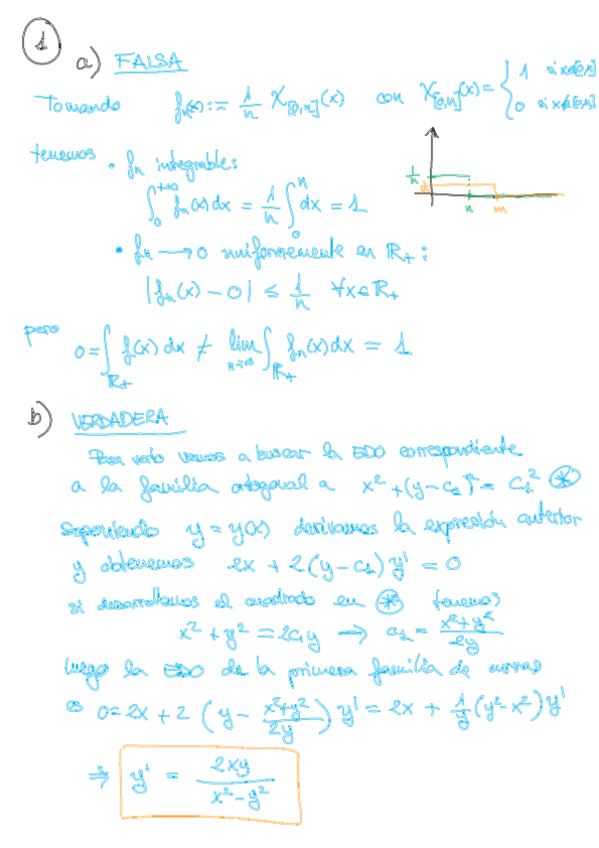 1
a) FALSA
Tomando fₙ(x) := 1/n χ[0,n](x) con χ[0,n](x) = { 1 si x∈[0,n]
0 si x∉[0,n]
tenemos • fₙ integrable:
∫₀^{+∞} fₙ(x) dx = 1/n ∫₀ⁿ dx = 1
1/n
1/m
n m
• fₙ → 0 uniformemente en ℝ₊ :
|fₙ(x) − 0| ≤ 1/n ∀x∈ℝ₊
pero
0 = ∫_{ℝ₊} f(x) dx ≠ lim_{n→∞} ∫_{ℝ₊} fₙ(x) dx = 1
b) VERDADERA
Para verlo vamos a buscar la EDO correspondiente
a la familia ortogonal a x² + (y − c₁)² = c₁² ⊛
suponiendo y = y(x) derivamos la expresión anterior
y obtenemos 2x + 2(y − c₁) y' = 0
si desarrollamos el cuadrado en ⊛ tenemos
x² + y² = 2c₁y → c₁ = (x² + y²)/2y
luego la EDO de la primera familia de curvas
es 0 = 2x + 2 (y − (x²+y²)/2y) y' = 2x + 1/y (y² − x²) y'
⇒ y' = 2xy/(x² − y²)